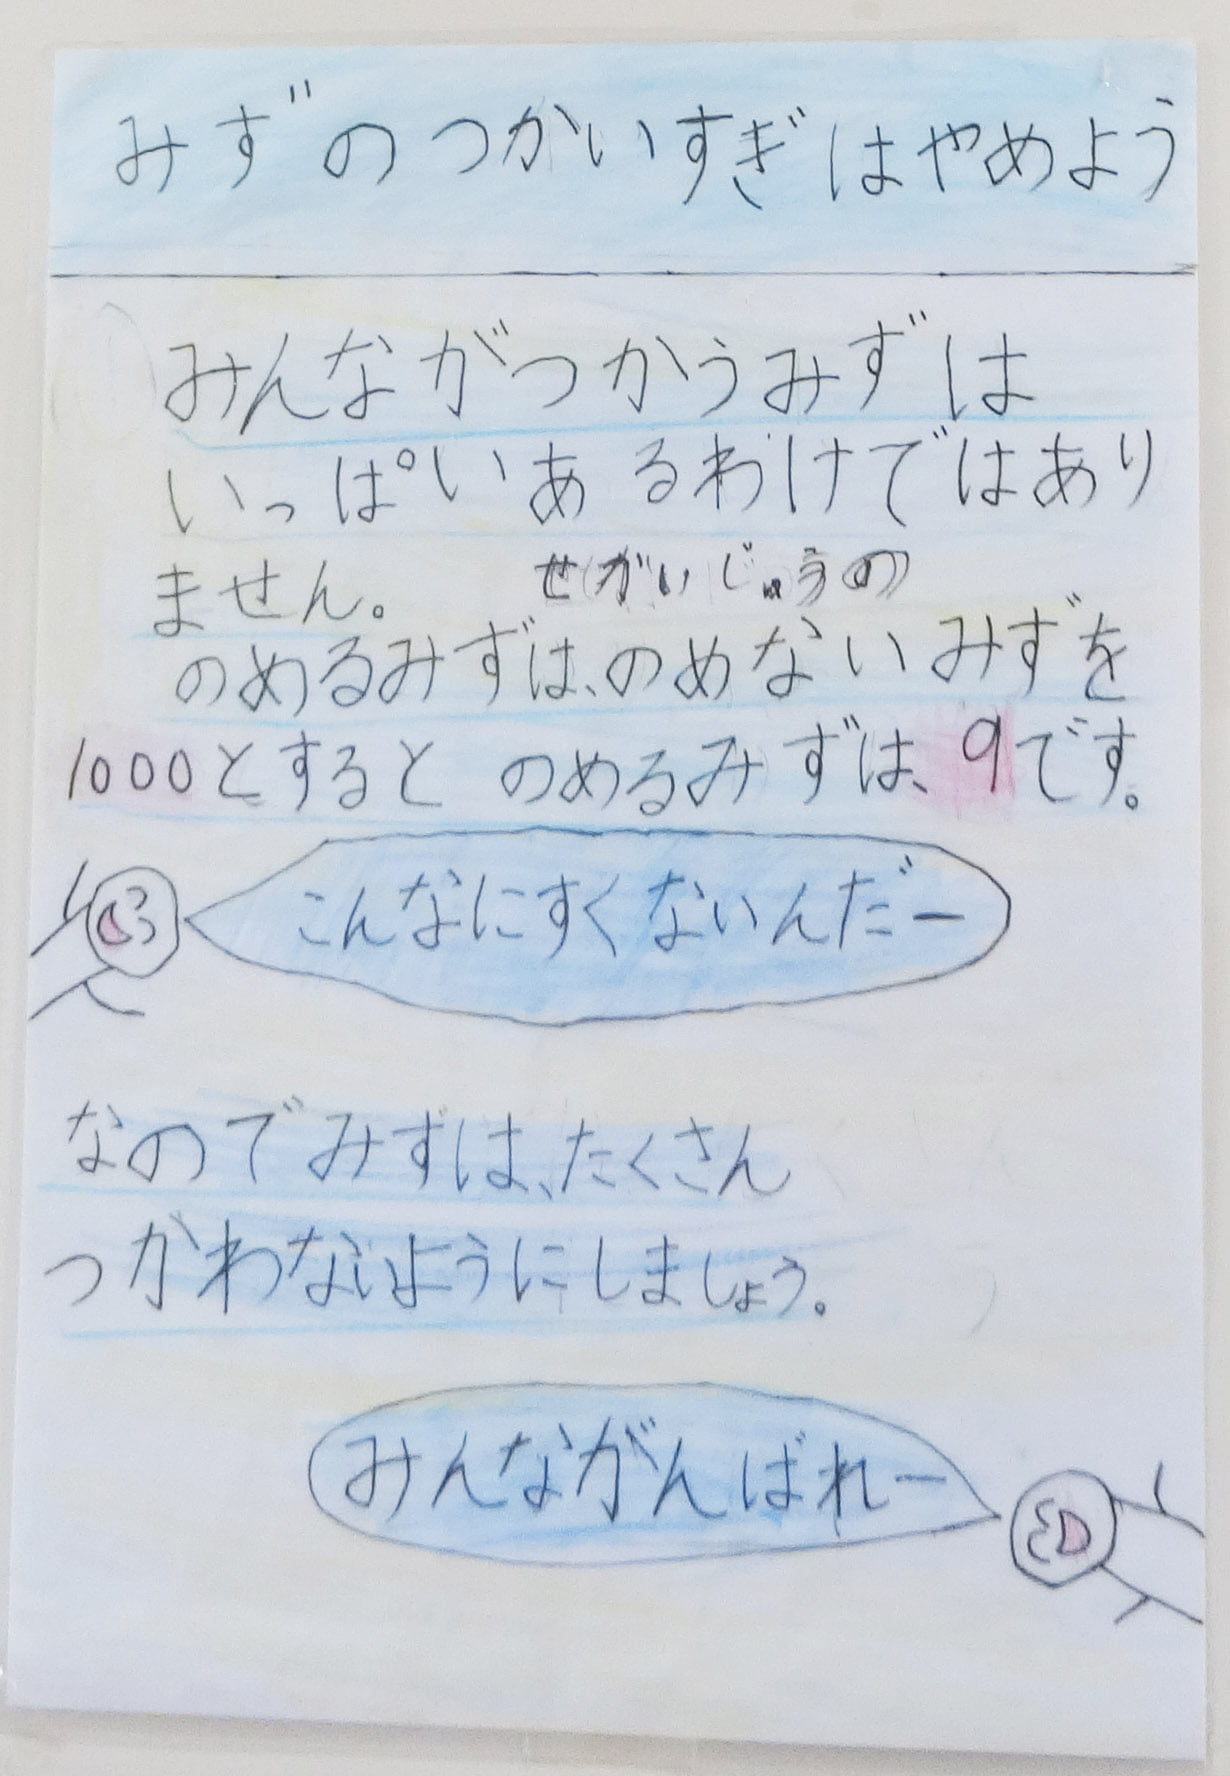 みずのつかいすぎはやめよう
みんながつかうみずは
いっぱいあるわけではあり
ません。
せがいじゅうの
のめるみずは、のめないみずを
1000とすると のめるみずは、9です。
こんなにすくないんだー
なのでみずは、たくさん
つかわないようにしましょう。
みんながんばれー